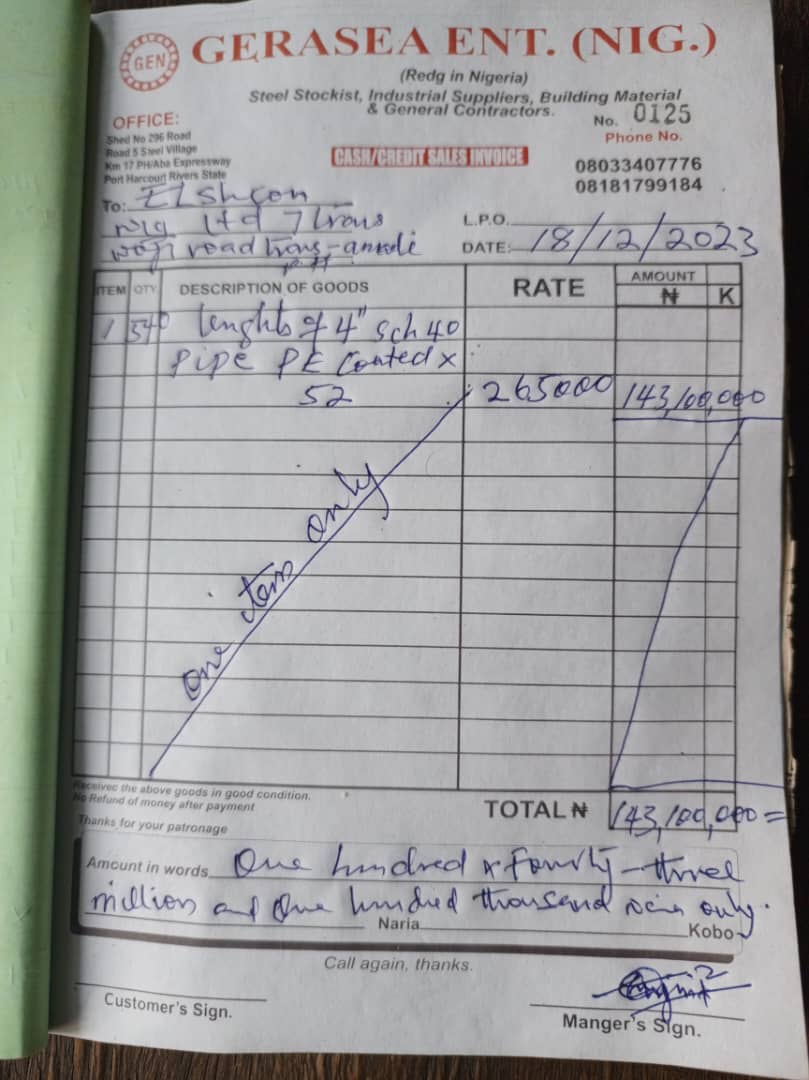 GEN
GERASEA ENT. (NIG.)
(Redg in Nigeria)
Steel Stockist, Industrial Suppliers, Building Material
& General Contractors.
No. 0125
OFFICE:
Shed No 296 Road
Road 5 Steel Village
Km 17 PH/Aba Expressway
Port Harcourt Rivers State
CASH/CREDIT SALES INVOICE
Phone No.
08033407776
08181799184
To: Elshcon
Nig Ltd 7 Trans
woji road trans-amadi
P.H
L.P.O.
DATE: 18/12/2023
ITEM QTY DESCRIPTION OF GOODS RATE AMOUNT
₦ K
1 540 lenghts of 4" sch 40
Pipe PE Coated x
52 265000 143,100,000
One item only
Received the above goods in good condition.
No Refund of money after payment
Thanks for your patronage
TOTAL ₦ 143,100,000=
Amount in words One hundred & fourty-three
million and One hundred thousand only.
Naria Kobo
Call again, thanks.
Customer's Sign.
Manger's Sign.